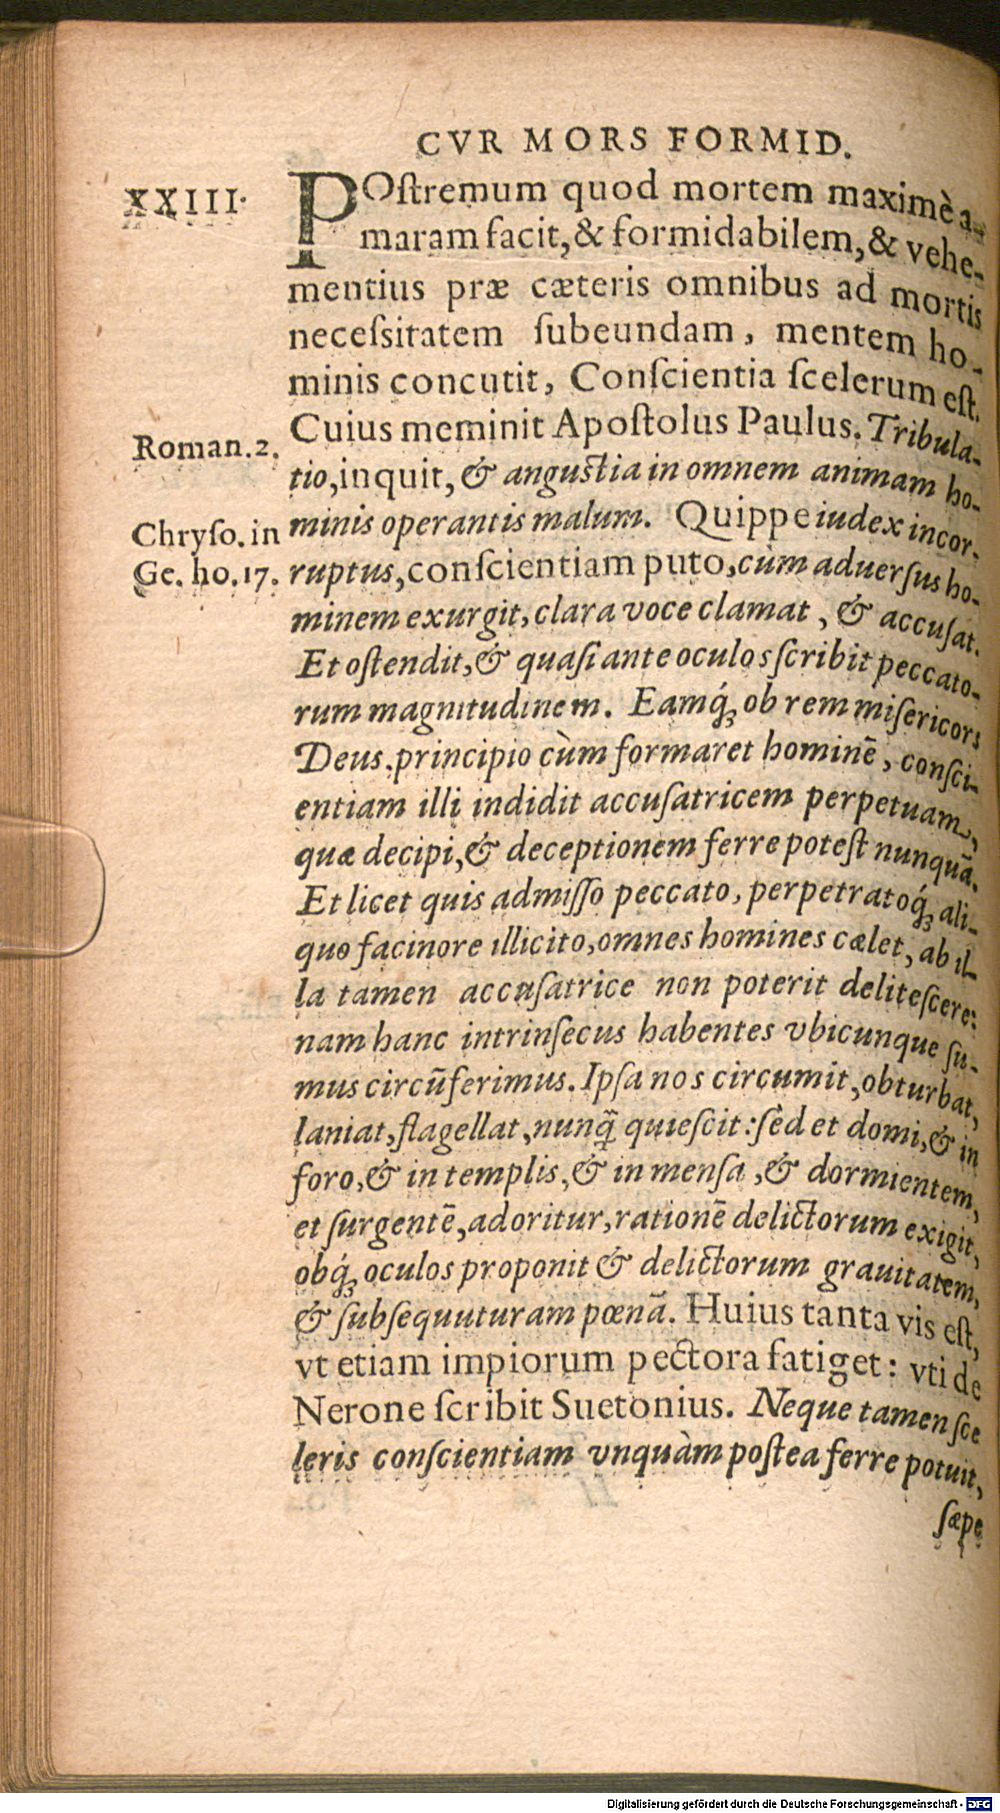 CVR MORS FORMID.
XXIII.
POſtremum quod mortem maximè a-
maram facit, & formidabilem, & vehe-
mentius præ cæteris omnibus ad mortis
neceſsitatem ſubeundam, mentem ho-
minis concutit, Conſcientia ſcelerum eſt.
Roman. 2.
Cuius meminit Apoſtolus Paulus. Tribula-
tio, inquit, & anguſtia in omnem animam ho-
Chryſo. in
minis operantis malum. Quippe iudex incor-
Ge. ho. 17.
ruptus, conſcientiam puto, cùm aduerſus ho-
minem exurgit, clara voce clamat, & accuſat.
Et oſtendit, & quaſi ante oculos ſcribit peccato-
rum magnitudinem. Eamq́ꝫ ob rem miſericors
Deus, principio cùm formaret hominē, conſci-
entiam illi indidit accuſatricem perpetuam,
quæ decipi, & deceptionem ferre poteſt nunquā.
Et licet quis admiſſo peccato, perpetratoq́ꝫ ali-
quo facinore illicito, omnes homines cælet, ab il-
la tamen accuſatrice non poterit deliteſcere:
nam hanc intrinſecus habentes vbicunque ſu-
mus circūferimus. Ipſa nos circumit, obturbat,
laniat, flagellat, nunq̃ quieſcit: ſèd et domi, & in
foro, & in templis, & in menſa, & dormientem,
et ſurgentē, adoritur, rationē delictorum exigit,
obq́ꝫ oculos proponit & delictorum grauitatem,
& ſubſequuturam pœnā. Huius tanta vis eſt,
vt etiam impiorum pectora fatiget: vti de
Nerone ſcribit Suetonius. Neque tamen ſce
leris conſcientiam vnquàm poſtea ferre potuit,
ſæpe
Digitalisierung gefördert durch die Deutsche Forschungsgemeinschaft - DFG